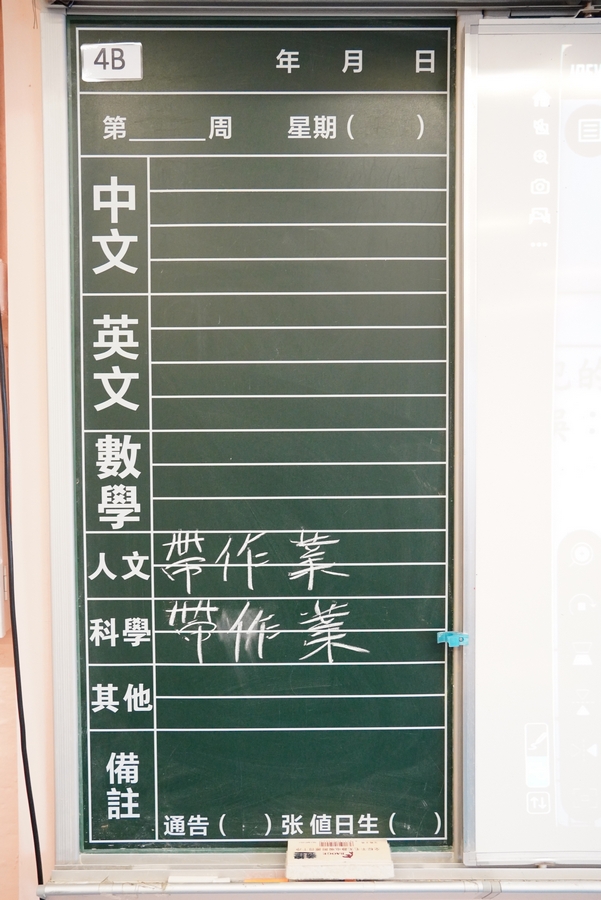 4B
年 月 日
第_____周 星期( )
中文
英文
數學
人文 帶作業
科學 帶作業
其他
備註
通告( )张 值日生( )